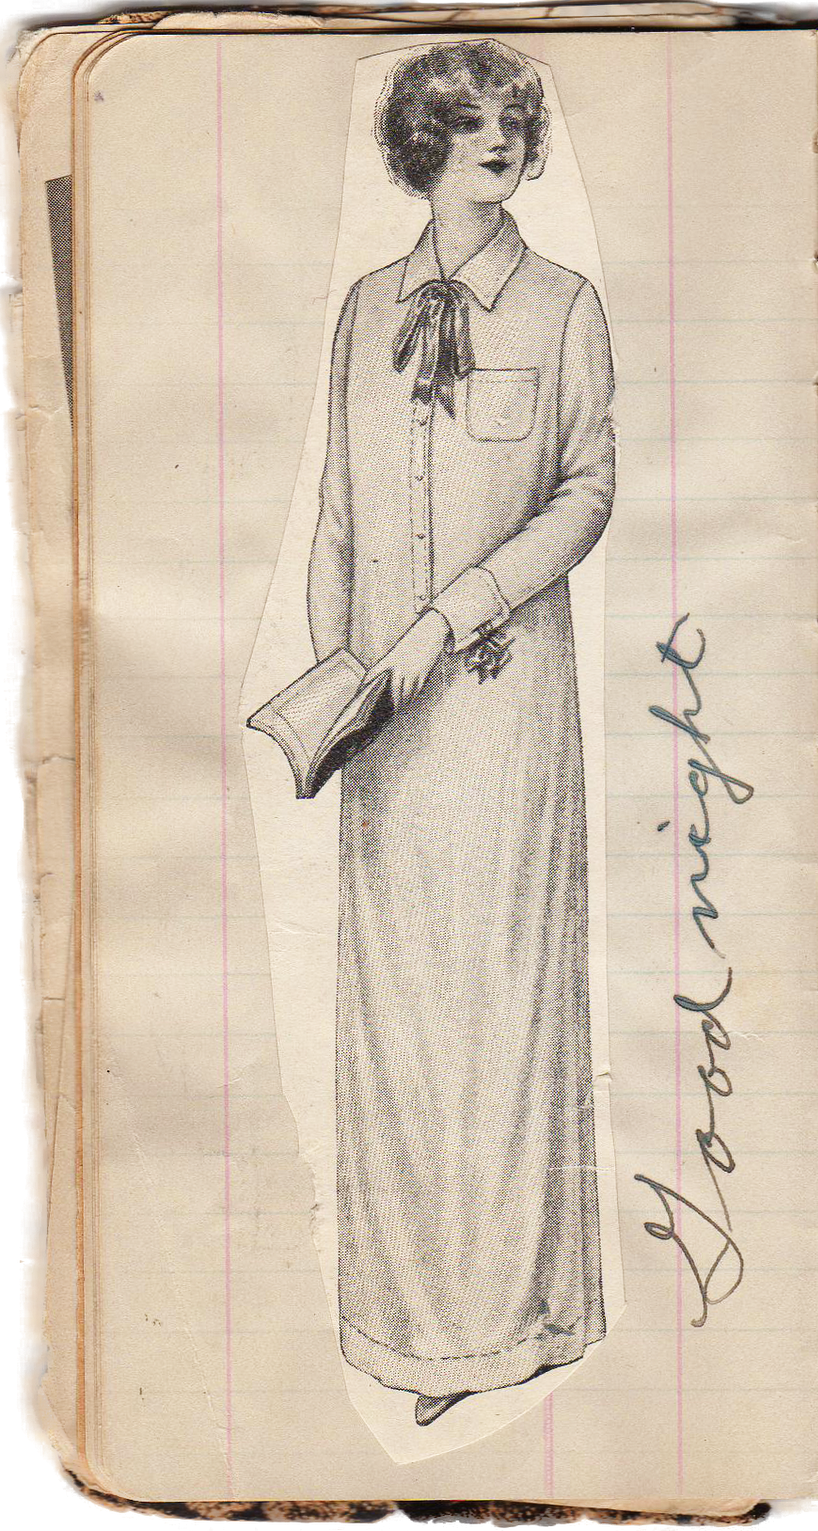 Good night